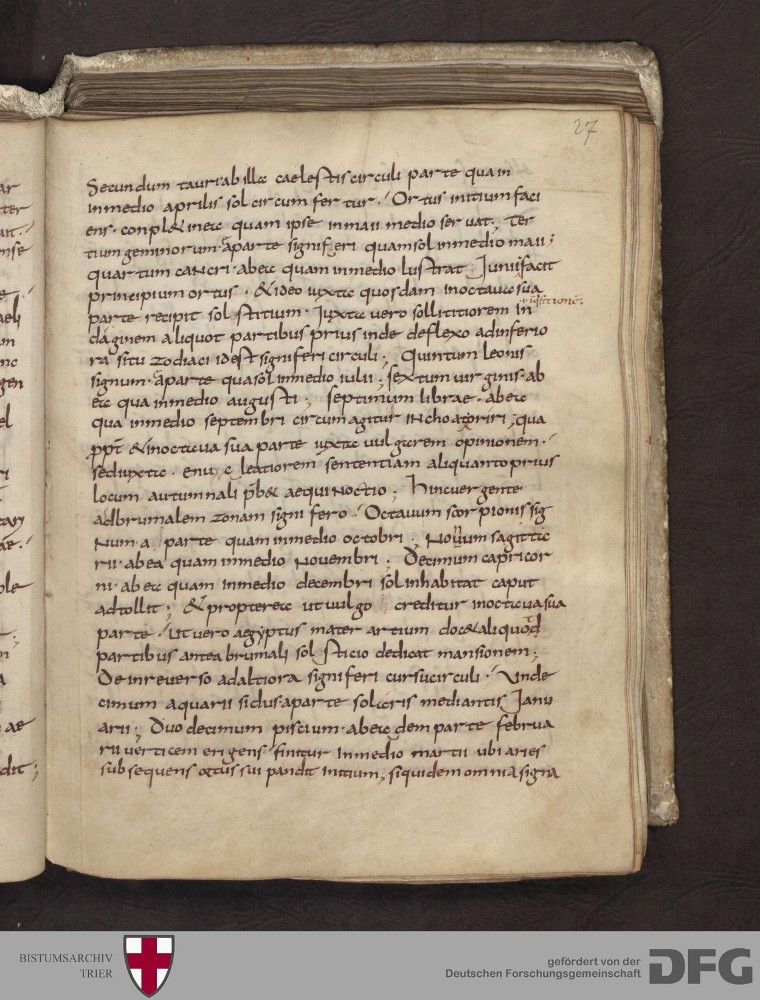 27
Secundum tauri ab illa caelestis circuli parte quam
in medio aprilis sol circum fertur. Ortus initium faci
ens. conpl& in ea quam ipse in maii medio servat; Ter
tium geminorum. a parte signiferi quam sol in medio maii;
quartum cancri. ab ea quam in medio lustrat Junii facit
principium ortus. & ideo iuxta quosdam in octava sua
parte recipit solstitium. Juxta vero sollitiorem in
daginem aliquot partibus prius inde deflexo ad inferio
ra situ zodiaci id est signiferi circuli; Quintum leonis
signum. a parte qua sol in medio iulii; sextum virginis. ab
ea qua in medio augusti; septimum librae. ab ea
qua in medio septembri circum agitur inchoat oriri; qua
ppt & in octava sua parte iuxta vulgarem opinionem.
sed iuxta. enucleatiorem sententiam aliquanto prius
locum autumnali pb& aequinoctio; Hinc vergente
ad brumalem zonam signifero. Octavum scorpionis sig
num. a parte quam in medio octobri; Novum sagitta
rii. ab ea quam in medio Novembri; Decimum capricor
ni. ab ea quam in medio decembri sol inhabitat caput
adtollit; & propterea ut vulgo creditur in octava sua
parte. Ut vero aegyptus mater artium doc& aliquod
partibus antea brumali solsticio dedicat mansionem;
Dein reverso ad altiora signiferi cursu circuli. Unde
cimum aquarii sidus. a parte solaris mediantis Janu
arii; Duodecimum piscium. ab eadem parte februa
rii verticem erigens finitur in medio martii ubi aries
subsequens ortus sui pandit initium; siquidem omnia signa
BISTUMSARCHIV
TRIER
gefördert von der
Deutschen Forschungsgemeinschaft
DFG